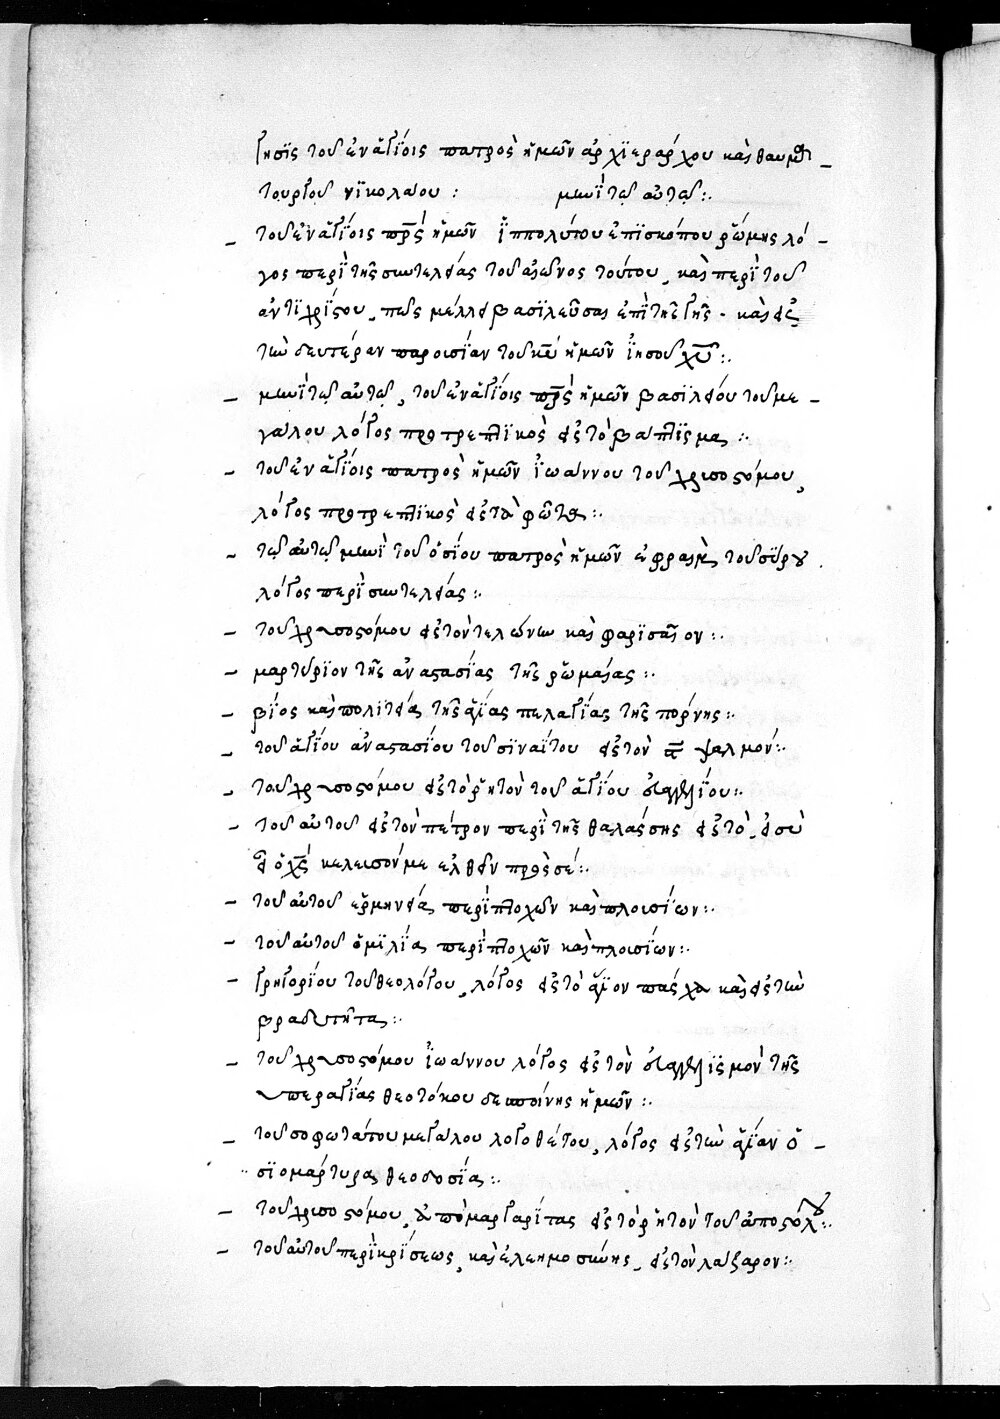 γησϊς τοῦ ἐν ἁγΐοις πατρὸς ἡμῶν ἀρχϊεράρχου καὶ θαυμα
τουργοῦ νϊκολάου : μηνὶ τῶ αὐτῶ :.
– τοῦ ἐν ἁγΐοις πρς ἡμῶν ἱππολύτου ἐπϊσκόπου ῥώμης λό –
γος περὶ τῆς συντελείας τοῦ αἰῶνος τούτου, καὶ περὶ τοῦ
ἀντϊχρΐστου, πῶς μέλλει βασϊλεῦσαι ἐπὶ τῆς γῆς · καὶ εἰς
τὴν δευτέραν παρουσΐαν τοῦ κυ ἡμῶν ἰησοῦ χυ :.
– μηνὶ τῶ αὐτῶ, τοῦ ἐν ἁγΐοις πρς ἡμῶν βασϊλείου τοῦ με –
γάλου λόγος προτρεπτϊκὸς εἰς τὸ βάπτϊσμα :.
– τοῦ ἐν ἁγΐοις πατρὸς ἡμῶν ἰωάννου τοῦ χρυσοστόμου,
λόγος προτρεπτϊκὸς εἰς τὰ φῶτα :.
– τῶ αὐτῶ μηνὶ τοῦ ὁσΐου πατρὸς ἡμῶν ἐφραὶμ τοῦ σύρου
λόγος περὶ συντελείας :.
– τοῦ χρυσοστόμου εἰς τὸν τελώνην καὶ φαρϊσαῖον :.
– μαρτύρϊον τῆς ἀναστασΐας τῆς ῥωμαίας :.
– βΐος καὶ πολϊτεία τῆς ἁγΐας πελαγΐας τῆς πόρνης :.
– τοῦ ἁγΐου ἀναστασΐου τοῦ σϊναΐτου εἰς τὸν ψαλμόν :.
– τοῦ χρυσοστόμου εἰς τὸ ῥητὸν τοῦ ἁγΐου εὐαγγελΐου :.
– τοῦ αὐτοῦ εἰς τὸν πέτρον περὶ τῆς θαλάσσης εἰς τὸ, εἰ σὺ
εἶ ὁ χς κέλευσόν με ἐλθεῖν πρὸς σέ :.
– τοῦ αὐτοῦ ἑρμηνεία περὶ πτωχῶν καὶ πλουσΐων :.
– τοῦ αὐτοῦ ὁμϊλΐα περὶ πτωχῶν καὶ πλουσΐων :.
– γρηγορΐου τοῦ θεολόγου, λόγος εἰς τὸ ἅγιον πάσχα καὶ εἰς τὴν
βραδυτῆτα :.
– τοῦ χρυσοστόμου ἰωάννου λόγος εἰς τὸν εὐαγγελϊσμὸν τῆς
ὑπεραγΐας θεοτόκου δεσποίνης ἡμῶν :.
– τοῦ σοφωτάτου μεγάλου λογοθέτου, λόγος εἰς τὴν ἁγΐαν ὁ –
σϊομάρτυρα θεοδοσΐα :.
– τοῦ χρυσοστόμου, ἀπὸ μαργαρίτας εἰς τὸ ῥητὸν τοῦ ἀποστόλου :.
– τοῦ αὐτοῦ περὶ κρΐσεως, καὶ ἐλεημοσύνης, εἰς τὸν λάζαρον :.